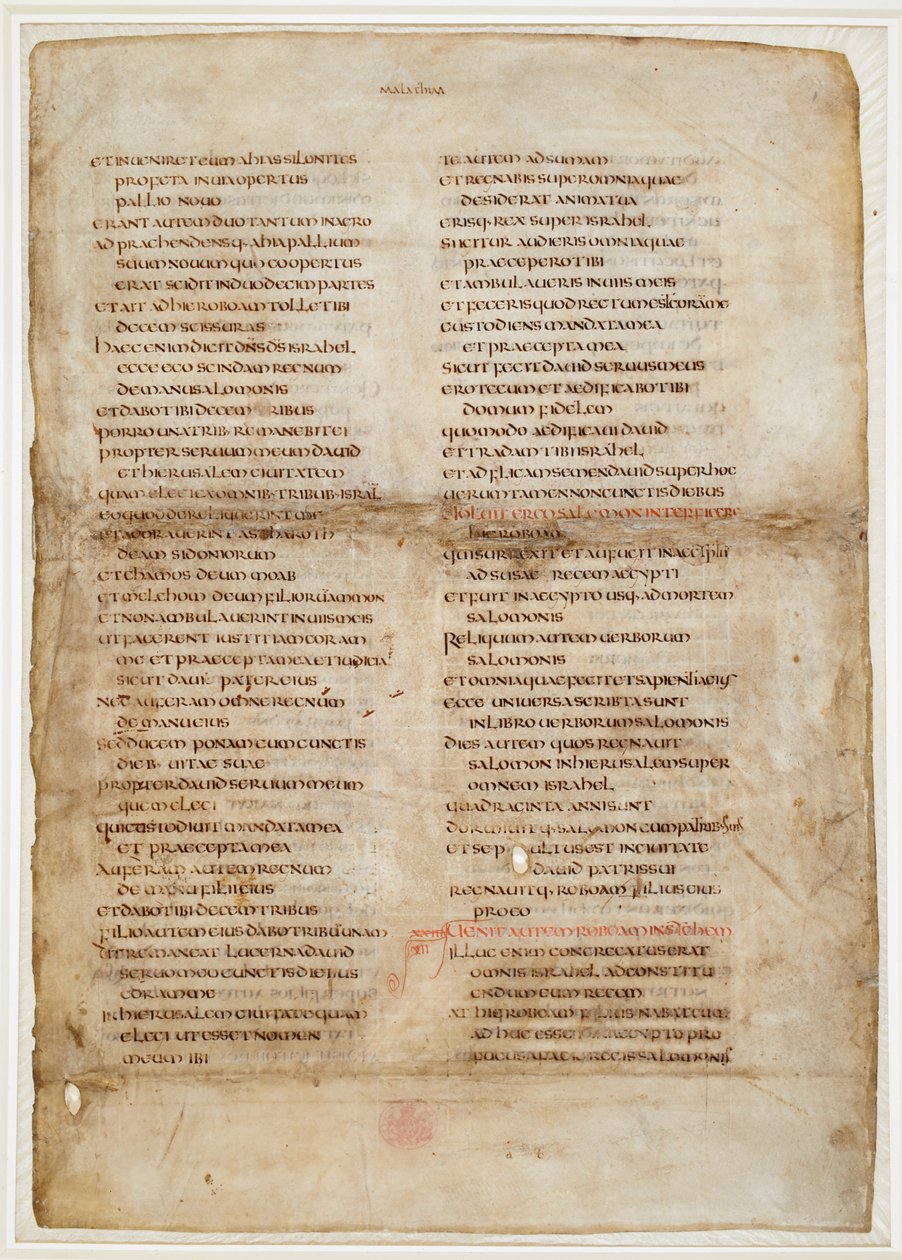 malachim
ETINUENIRETEUMAHIASSILONITES
PROFETA INUIAOPERTUS
PALLIO NOUO
ERANT AUTEMDUOTANTUM INAGRO
ADPRAEHENDENSQ·AHIAPALLIUM
SUUMNOUUMQUOCOOPERTUS
ERAT SCIDITINDUODECIMPARTES
ETAIT ADHIEROBOAMTOLLETIBI
DECEM SCISSURAS
HAECENIMDICITDNSDSISRAHEL
ECCE EGO SCINDAM REGNUM
DEMANUSALOMONIS
ETDABOTIBIDECEM RIBUS
PORROUNATRIB·REMANEBITEI
PROPTER SERUUMMEUMDAUID
ETHIERUSALEMCIUITATEM
QUAMELEGIEXOMNIB·TRIBUB·ISRAL
EOQUODDERELIQUERINTME
ETADORAUERINTASTHAROTH
DEAM SIDONIORUM
ETCHAMOS DEUM MOAB
ETMELCHOM DEUMFILIORUAMMON
ETNONAMBULAUERINTINUIISMEIS
UTFACERENT IUSTITIAMCORAM
ME ETPRAECEPTAMEAETIUDICIA
SICUT DAUID PATEREIUS
NEC AUFERAM OMNEREGNUM
DEMANUEIUS
SEDDUCEM PONAMEUMCUNCTIS
DIEB· UITAE SUAE
PROPTERDAUIDSERUUMMEUM
QUEMELEGI
QUICUSTODIUITMANDATAMEA
ET PRAECEPTAMEA
AUFERAM AUTEMREGNUM
DE MANUFILIIEIUS
ETDABOTIBIDECEMTRIBUS
FILIOAUTEMEIUSDABOTRIBUUNAM
UTREMANEAT LUCERNADAUID
SERUOMEOCUNCTISDIEBUS
CORAMME
INHIERUSALEMCIUITATEQUAM
ELEGI UTESSETNOMEN
MEUM IBI
TE AUTEM ADSUMAM
ETREGNABISSUPEROMNIAQUAE
DESIDERAT ANIMATUA
ERISQ·REX SUPERISRAHEL
SIIGITUR AUDIERISOMNIAQUAE
PRAECEPEROTIBI
ETAMBULAUERIS INUIISMEIS
ETFECERISQUODRECTUMESTCORAME
CUSTODIENSMANDATAMEA
ETPRAECEPTAMEA
SICUT FECITDAUIDSERUUSMEUS
EROTECUMETAEDIFICABOTIBI
DOMUM FIDELEM
QUOMODO AEDIFICAUIDAUID
ETTRADAMTIBIISRAHEL
ETADFLIGAMSEMENDAUIDSUPERHOC
UERUMTAMENNONCUNCTISDIEBUS
UOLUITERGOSALOMONINTERFICERE
HIEROBOAM
QUISURREXITETAUFUGITINAEGYPTU
ADSUSAC REGEMAEGYPTI
ETFUIT INAEGYPTOUSQ·ADMORTEM
SALOMONIS
RELIQUUMAUTEMUERBORUM
SALOMONIS
ETOMNIAQUAEFECITETSAPIENTIAEIUS
ECCE UNIUERSASCRIBTASUNT
INLIBROUERBORUMSALOMONIS
DIES AUTEM QUOSREGNAUIT
SALOMON INHIERUSALEMSUPER
OMNEM ISRAHEL
QUADRAGINTA ANNISUNT
DORMIUITQ·SALOMONCUMPATRIB·SUIS
ETSEP ULTUSEST INCIUITATE
DAUID PATRISSUI
REGNAUITQ·ROBOAM FILIUSEIUS
PROEO
XXIIII
UENITAUTEMROBOAMINSICHEM
ILLUC ENIM CONGREGATUSERAT
OMNIS ISRAHEL ADCONSTITU
ENDUMEUM REGEM
AT HIEROBOAM FILIUSNABATCUM
ADHUC ESSET AEGYPTOPRO
FUGUSAFACIEREGISSALOMONIS